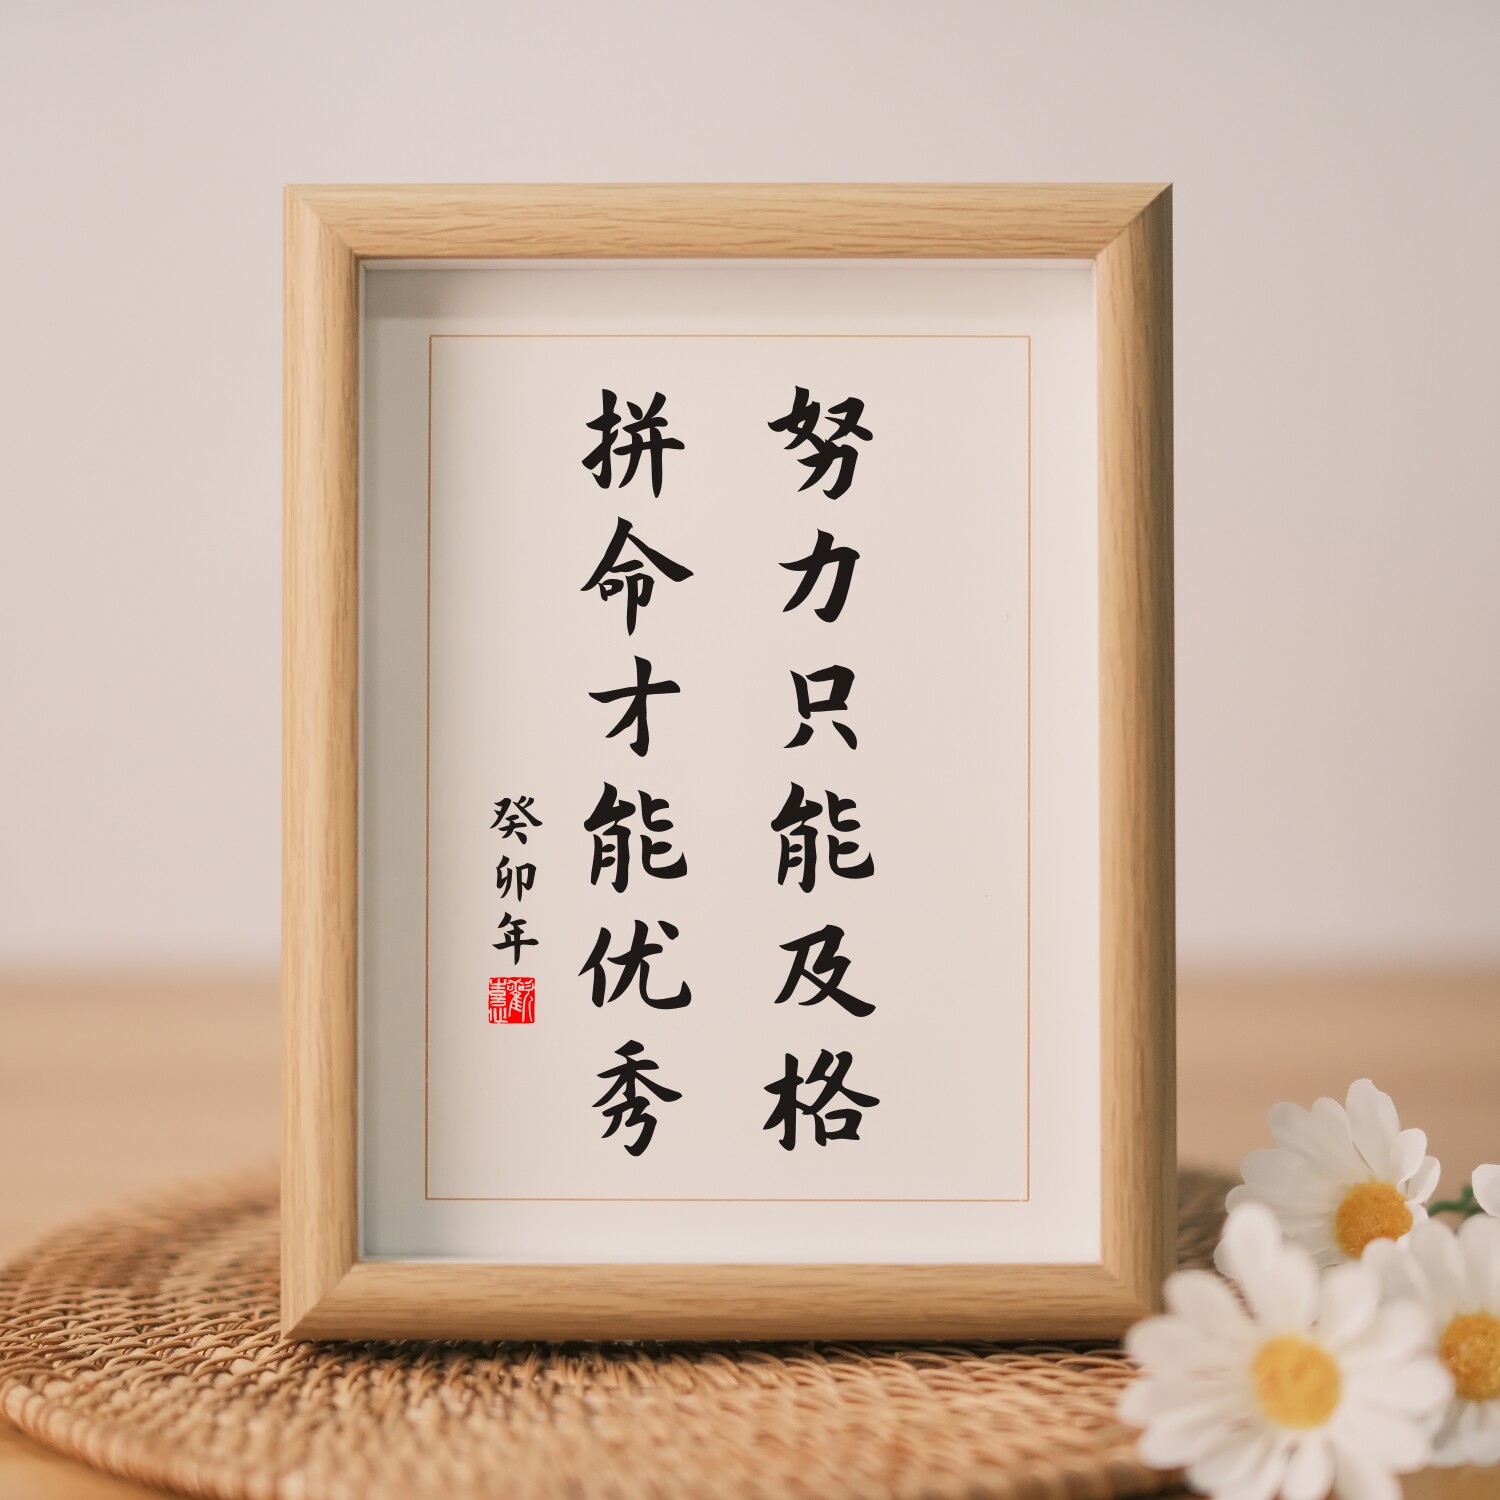 努力只能及格
拼命才能优秀
癸卯年
歡喜